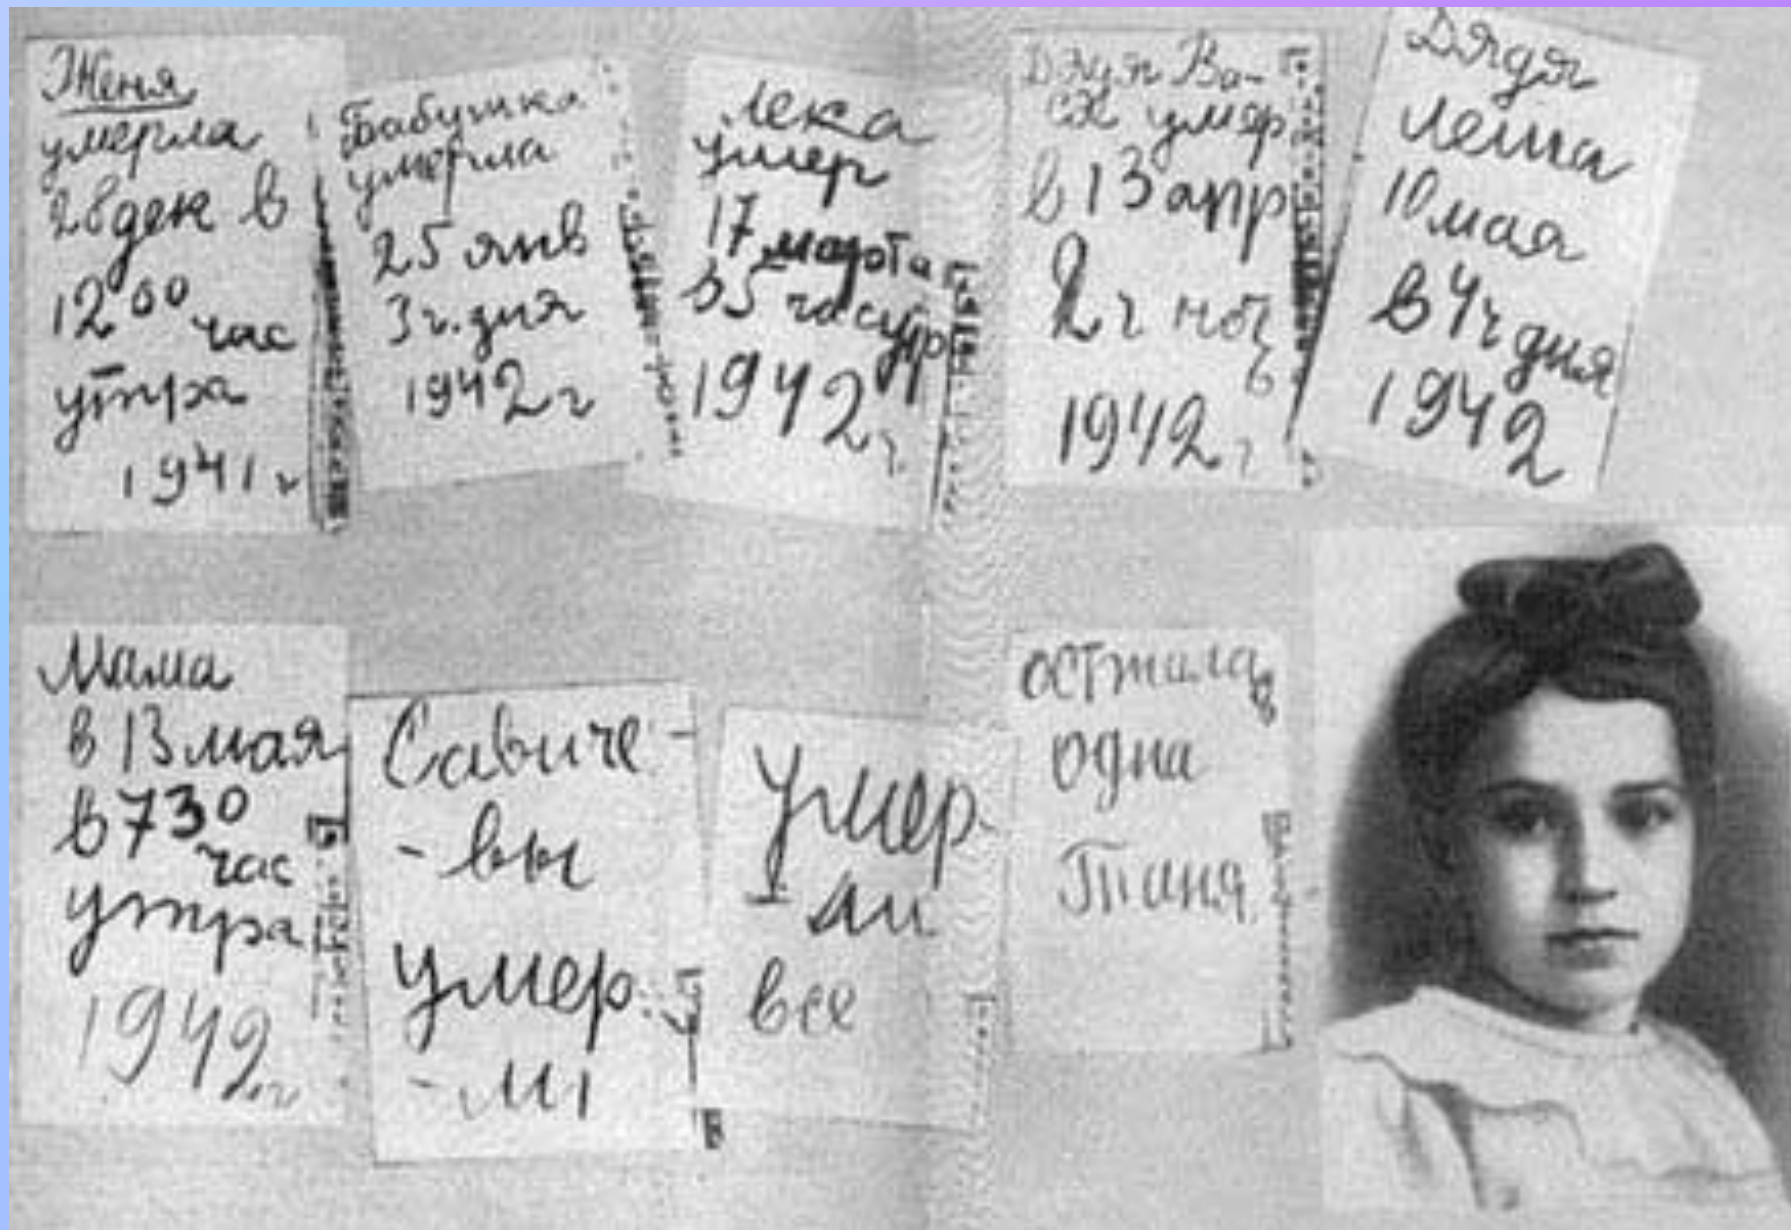 Женя
умерла
28 дек в
12⁰⁰ час
утра
1941 г
Бабушка
умерла
25 янв
3 ч. дня
1942 г
Лека
умер
17 марта
в 5 час утр
1942 г
Дядя Ва-
ся умер
в 13 апр
2 ч ноч
ь
1942 г
Дядя
Леша
10 мая
в 4 ч дня
1942
Мама
в 13 мая
в 7³⁰
час
утра
1942 г
Савиче-
-вы
умер
-ли
Умер-
-ли
все
осталась
одна
Таня